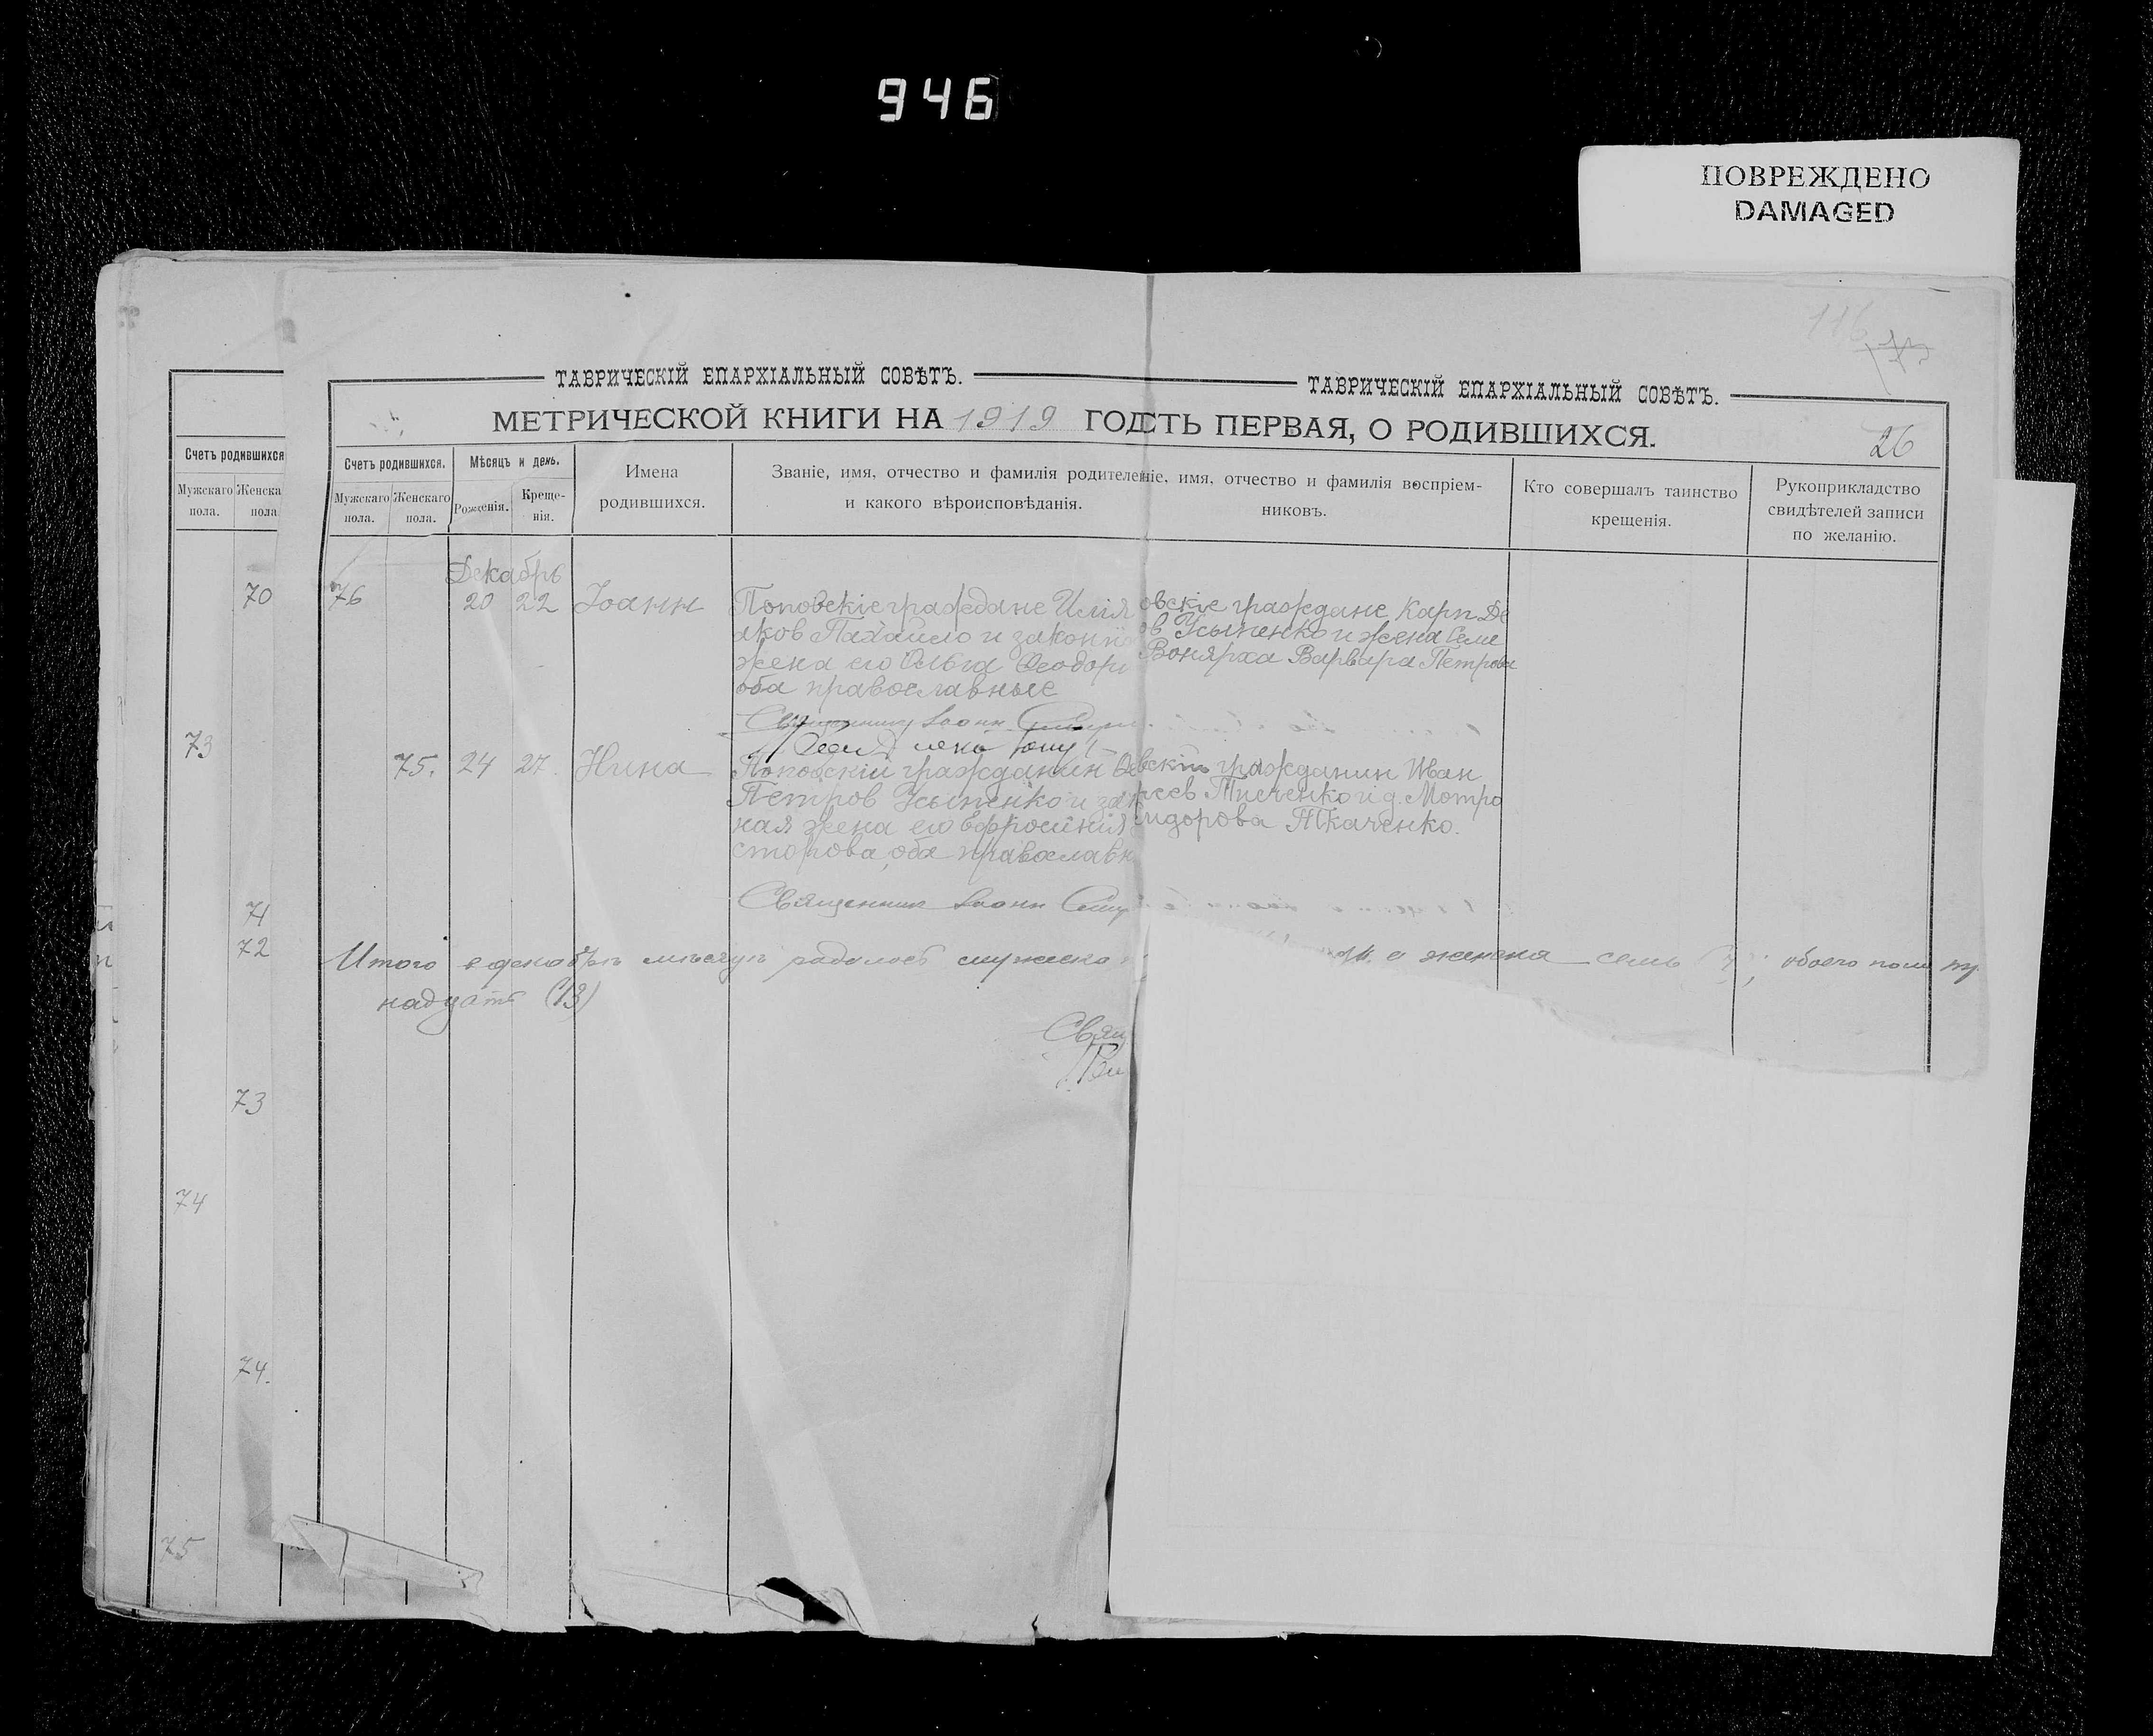 946
ПОВРЕЖДЕНО
DAMAGED
116
26
ТАВРИЧЕСКІЙ ЕПАРХІАЛЬНЫЙ СОВѢТЪ.
ТАВРИЧЕСКІЙ ЕПАРХІАЛЬНЫЙ СОВѢТЪ.
МЕТРИЧЕСКОЙ КНИГИ НА 1919 ГОД
СТЬ ПЕРВАЯ, О РОДИВШИХСЯ.
Счетъ родившихся
Мужскаго пола.
Женска пола
70
73
71
72
73
74
74.
75
Счетъ родившихся.
Мужскаго пола.
Женскаго пола.
Мѣсяцъ и день.
Рожденія.
Креще-
нія.
Имена
родившихся.
Званіе, имя, отчество и фамилія родителе
и какого вѣроисповѣданія.
ніе, имя, отчество и фамилія воспріем-
никовъ.
Кто совершалъ таинство
крещенія.
Рукоприкладство
свидѣтелей записи
по желанію.
Декабрь
76 20 22 Іоанн
Поповскіе граждане Илія
яков Пахайло и законн
жена его Ольга Ѳеодор
оба православные
овскіе граждане Карп Де
ов Усыпенко и жена Семе
Вонярха Варвара Петрова
Священник Іоанн
75. 24 27. Нина
Поповскій гражданин
Петров Усыпенко и зак
ная жена его Ефросинія
сторова, оба православн
вскій гражданин Иван
сеев Тисченко и д. Мотро
идорова Ткаченко.
Священник Іоанн
Итого в декабрѣ мѣсяцѣ родилось мужеско
а женска семь (7); обоего пола тр
надцать (13)
Свящ